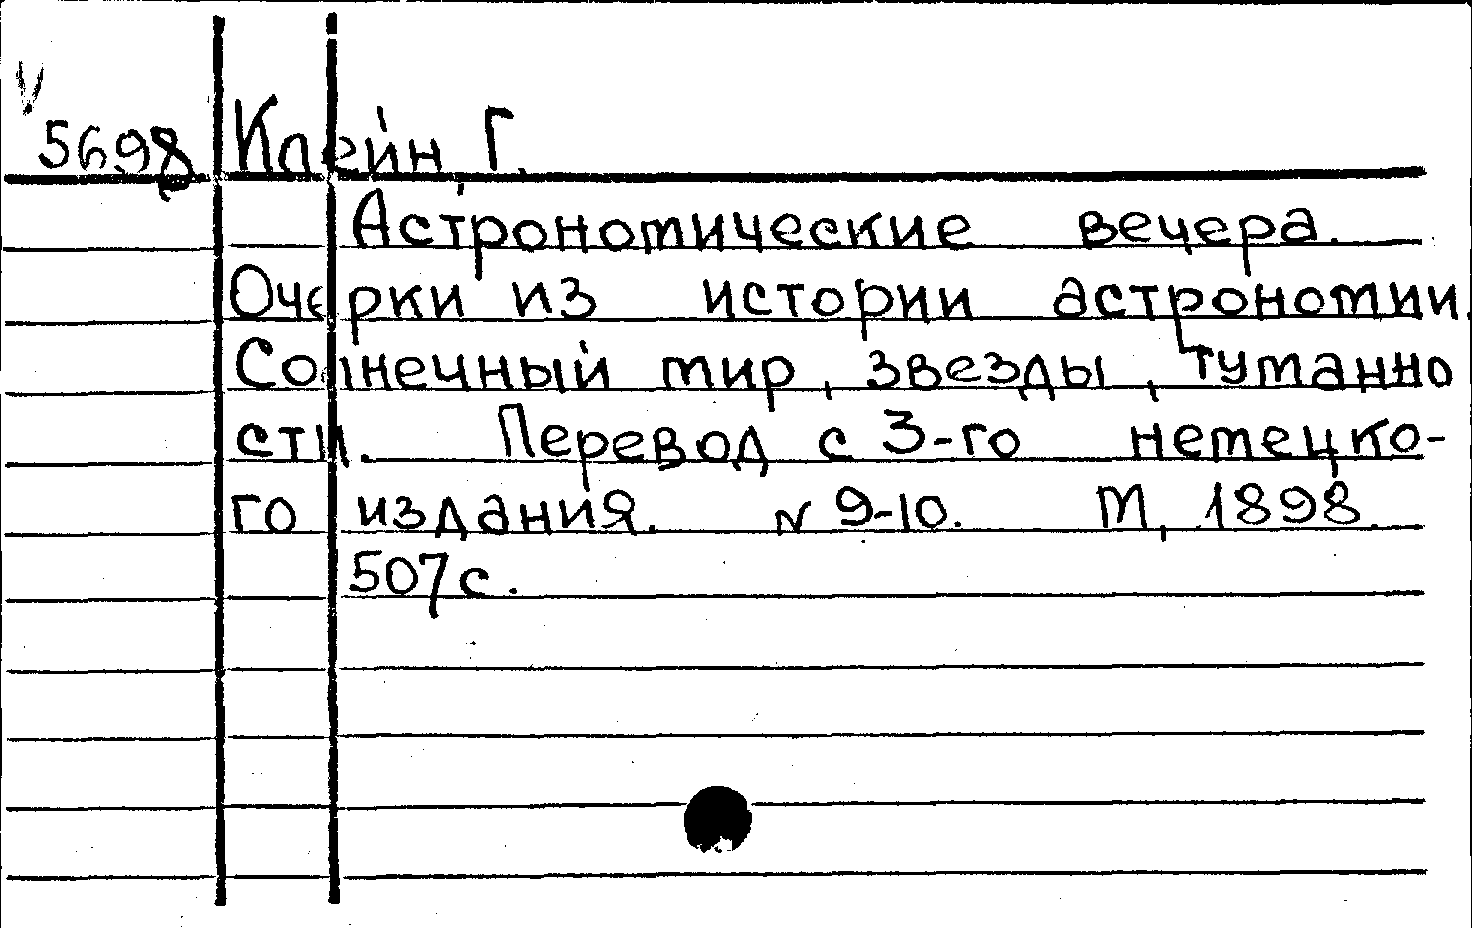 V
5698 Клейн, Г.
Астрономические вечера.
Очерки из истории астрономии.
Солнечный мир, звезды, туманно
сти. Перевод с 3-го немецко-
го издания. N 9-10. М, 1898.
507с.